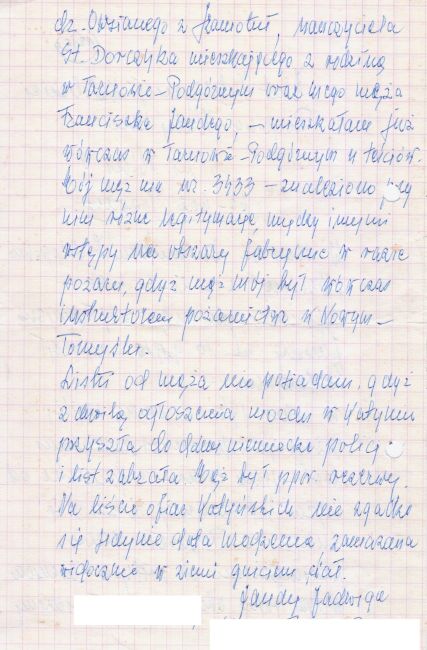 dr. Owsianego z Szamotuł, nauczyciela
St. Dorczyka mieszkającego z rodziną
w Tarnowie-Podgórnym oraz mego męża
Franciszka Jandego, – mieszkałam już
wówczas w Tarnowie-Podgórnym u teściów.
Mój mąż ma nr. 3433 – znaleziono przy
nim różne legitymacje, między innymi
wstępy na obszary fabryczne w razie
pożaru, gdyż mąż mój był wówczas
instruktorem pożarnictwa w Nowym –
Tomyślu.
Listu od męża nie posiadam, gdyż
z chwilą ogłoszenia mordu w Katyniu
przyszła do domu niemiecka policja
i list zabrała. Mąż był ppor. rezerwy.
Na liście ofiar Katyńskich nie zgadza
się jedynie data urodzenia, zamazana
widocznie w ziemi gniciem ciał.
Jandy Jadwiga